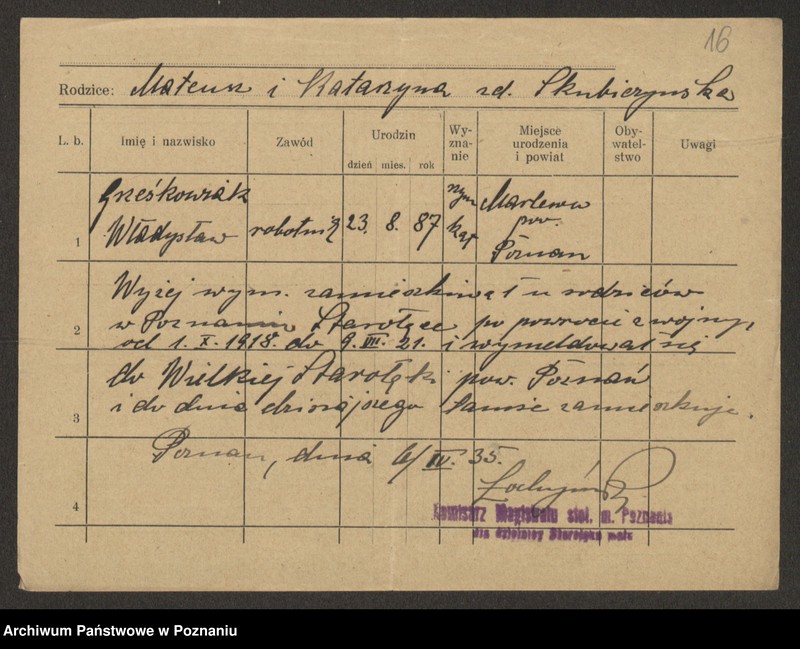 16
Rodzice: Mateusz i Katarzyna zd. Skubiszyńska
L. b. Imię i nazwisko Zawód Urodzin dzień mies. rok Wy-zna-nie Miejsce urodzenia i powiat Oby-watel-stwo Uwagi
Grześkowiak rzym Marlewo
1 Władysław robotnik 23. 8. 87 kat pow.
Poznan
Wyżej wym. zamieszkiwał u rodziców
2 w Poznaniu Starołęce po powrocie z wojny,
od 1. X. 1918. do 9. VII. 21. i wymeldował się
do Wielkiej Starołęki pow. Poznań
3 i do dnia dzisiejszego tamże zamieszkuje.
Poznan, dnia 6/IV. 35.
4 Komisarz Magistratu stoł. m. Poznania
dla dzielnicy Starołęka mała
Archiwum Państwowe w Poznaniu